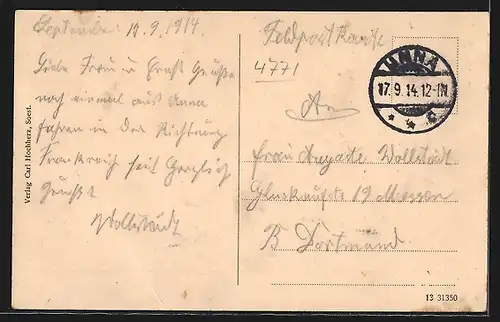 September 17.9.1914.
Liebe Frau u Ernst Grüße
noch einmal aus Unna
fahren in der Richtung
Frankreich seit Herzlich
Grüßt
Wollstädt
Verlag Carl Hochherz, Soest.
Feldpostkarte
4771
An
UNNA
17.9.14.12-1N
* * c
Frau Auguste Wollstädt
Glückaufstr 19
B Dortmund
13 31350